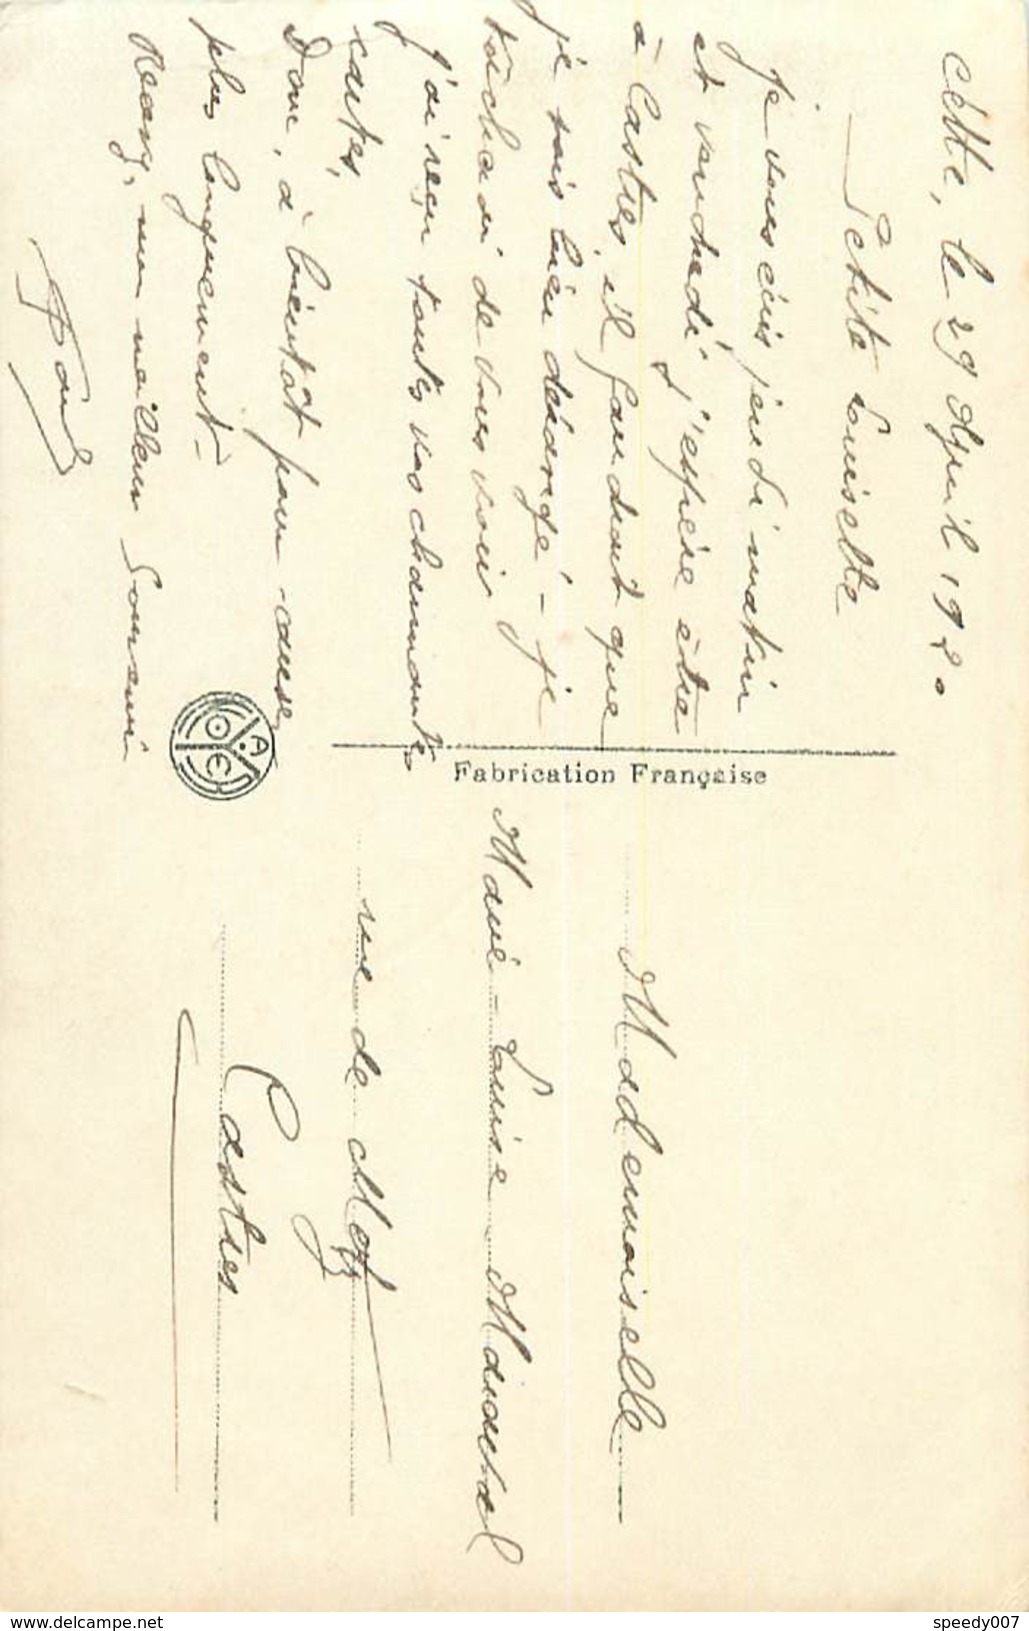 Cette, le 29 Avril 1920
Petite Louisette
Je vous écris jeudi matin
et vendredi j'espère être
à Castres, il faudrait que
je sois bien dérangé - je
tâcherai de vous voir
J'ai reçu toutes vos charmantes
cartes,
Donc, à bientôt pour causer
plus longuement -
Recevez, mon meilleur Souvenir
Fabrication Française
Mademoiselle
Marie-Louise Marchal
rue de Metz
Castres
delcampe.net
speedy007